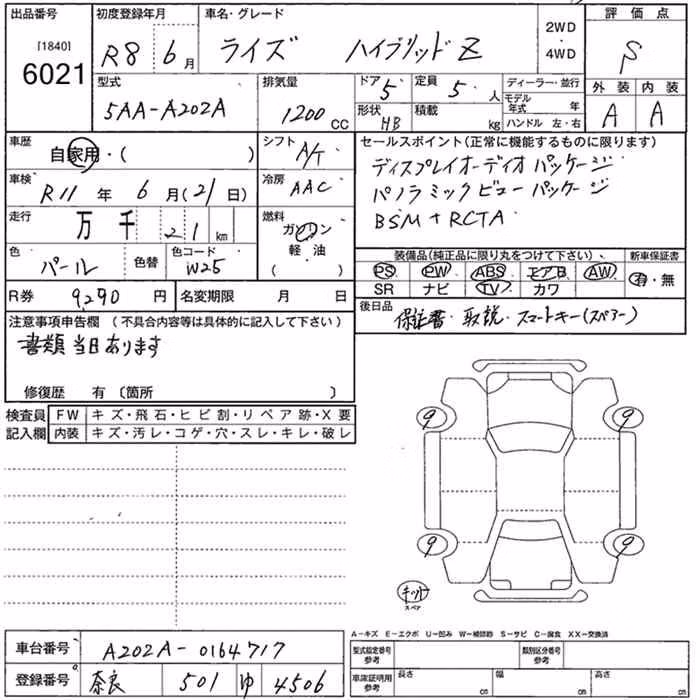 出品番号 初度登録年月 車名・グレード 2WD・4WD 評価点
[1840] 6021 R8年6月 ライズ ハイブリッドZ S
型式 排気量 ドア 5 定員 5人 ディーラー・並行 外装 内装
5AA-A202A 1200CC 形状 HB 積載 kg モデル年式 年 ハンドル 左・右 A A
車歴 自家用・( ) シフト A/T セールスポイント(正常に機能するものに限ります)
車検 R11年6月(21日) 冷房 AAC ディスプレイオーディオパッケージ
パノラミックビューパッケージ
走行 万千21km 燃料 ガソリン BSM+RCTA
軽・油
( )
色 パール 色替 色コード W25 装備品(純正品に限り丸をつけて下さい) 新車保証書
PS PW ABS エアB AW 有・無
R券 9,290円 名変期限 月 日 SR ナビ TV カワ
注意事項申告欄 (不具合内容等は具体的に記入して下さい) 後日品 保証書・取説・スマートキー(スペアー)
書類当日あります
修復歴 有 〔箇所 〕
検査員 FW キズ・飛石・ヒビ割・リペア跡・X要
記入欄 内装 キズ・汚レ・コゲ・穴・スレ・キレ・破レ
9 9
9 9
キット
スペア
A-キズ E-エクボ U-凹み W-補修跡 S-サビ C-腐食 XX-交換済
車台番号 A202A-0164717 型式指定番号 参考 類別区分番号 参考
登録番号 奈良 501 ゆ 4506 車庫証明用 参考 長さ cm 幅 cm 高さ cm